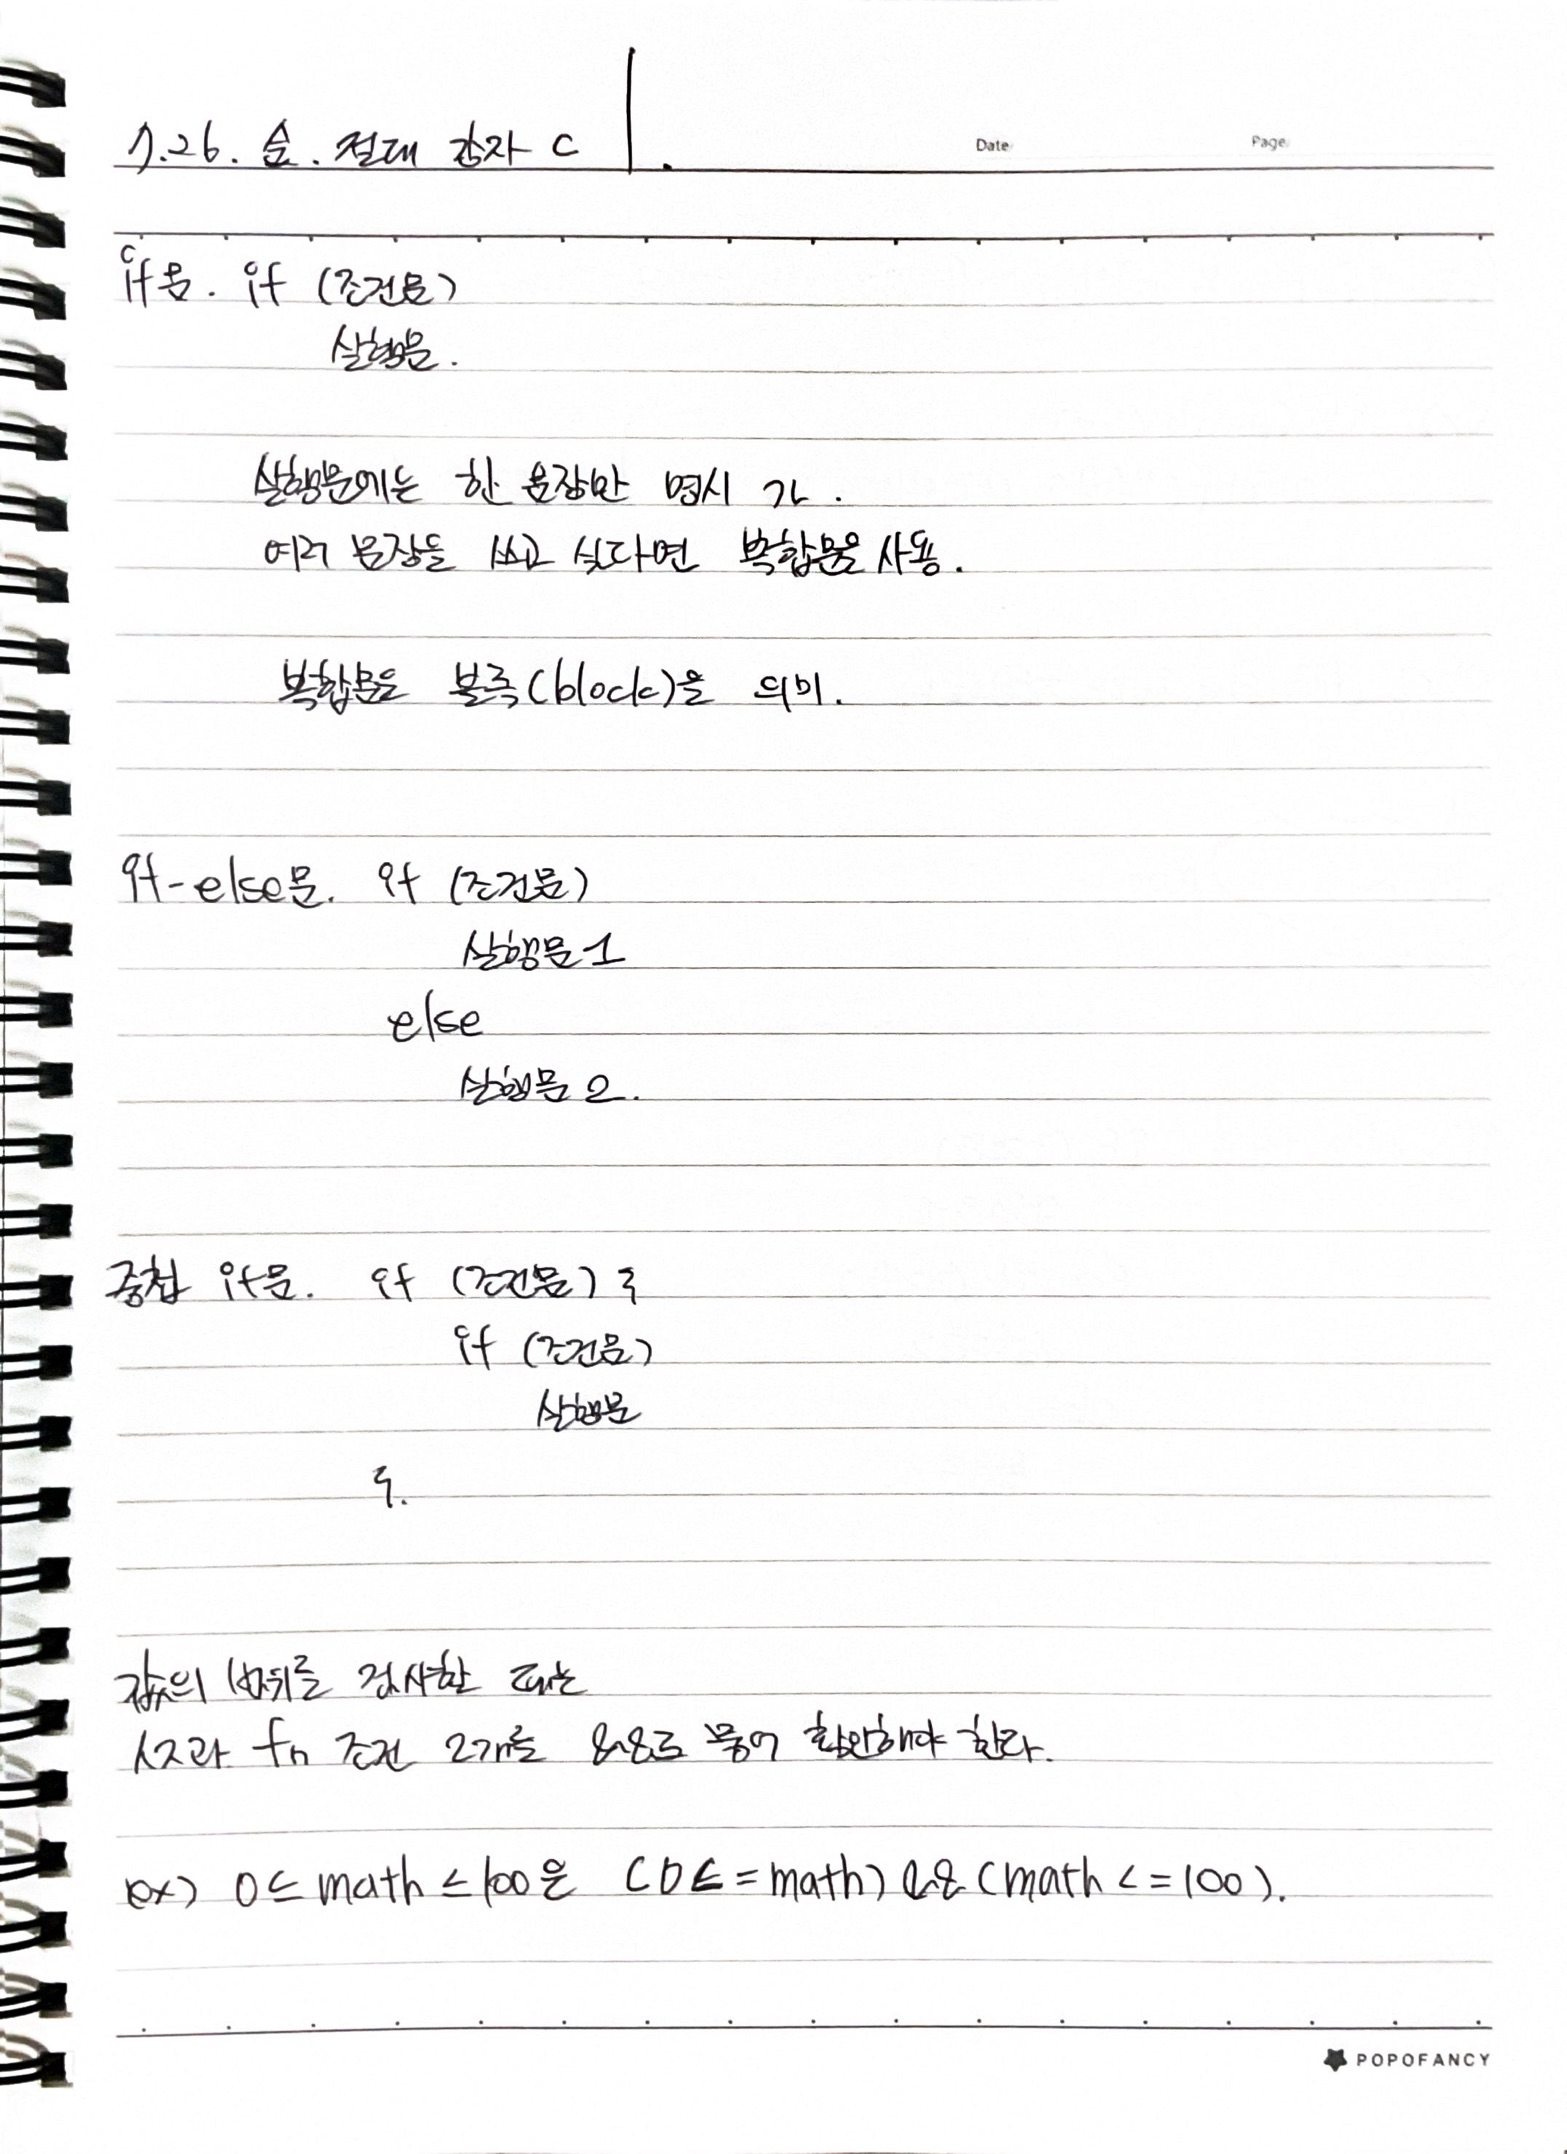 7.26. 숨. 절대 강자 C
Date
Page
if문. if (조건문)
실행문.
실행문에는 한 문장만 명시 가.
여러 문장을 쓰고 싶다면 복합문을 사용.
복합문은 블록(block)을 의미.
if-else문. if (조건문)
실행문1
else
실행문2.
중첩 if문. if (조건문) {
if (조건문)
실행문
}.
값의 범위를 검사할 때는
시작과 fn 조건 2개를 &&로 묶어 확인해야 한다.
ex) 0≤math≤100은 (0<=math)&&(math<=100).
POPOFANCY